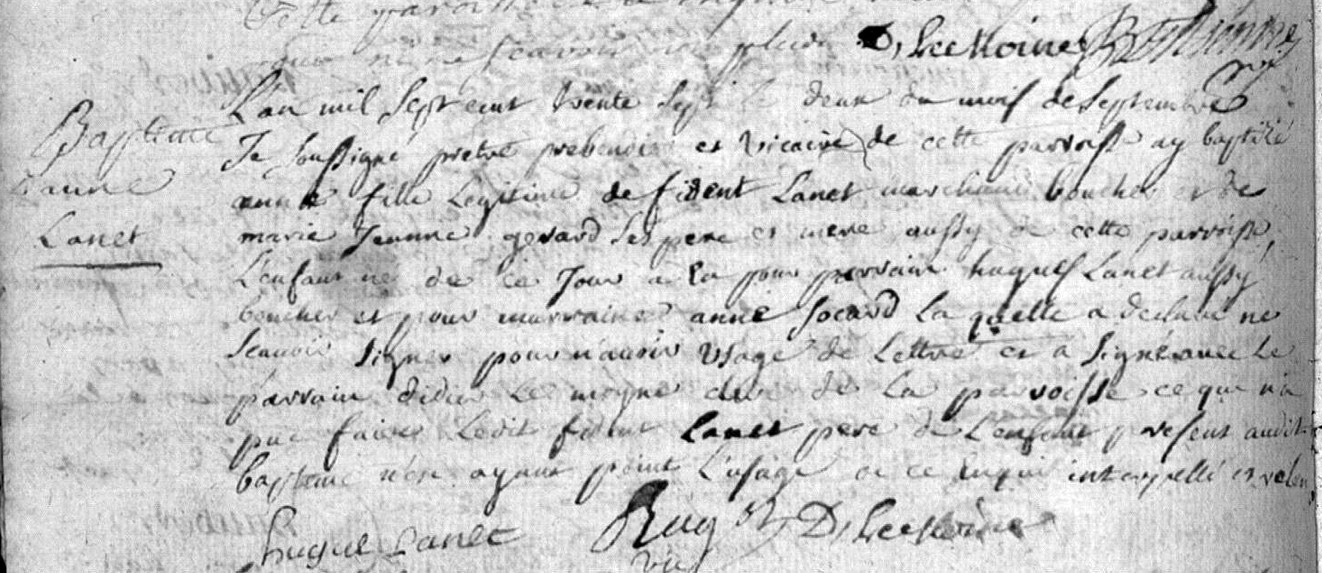 Cette
que ne scavoir non plus D, Lee Moine
Bapteme
d'anne
Lanet
L'an mil sept cent trente sept le deux du mois de septembre
Je soussigné pretre prebendier et vicaire de cette parroisse ay baptisé
anne fille legitime de fident Lanet marchand boucher et de
marie Jeanne gerard ses pere et mere aussy de cette parroisse,
L'enfant né de ce Jour a eu pour parrain hugues Lanet aussy
boucher et pour marraine anne Jocard la quelle a declaré ne
scavoir signer pour n'avoir usage de Lettre et a signé avec le
parrain didier Le moyne clerc de La paroisse ce que n'a
pue faire Ledit fident Lanet pere de L'enfant present audit
bapteme n'en ayant point L'usage de ce enquis interpellé et
hugue Lanet D, Lee Moine